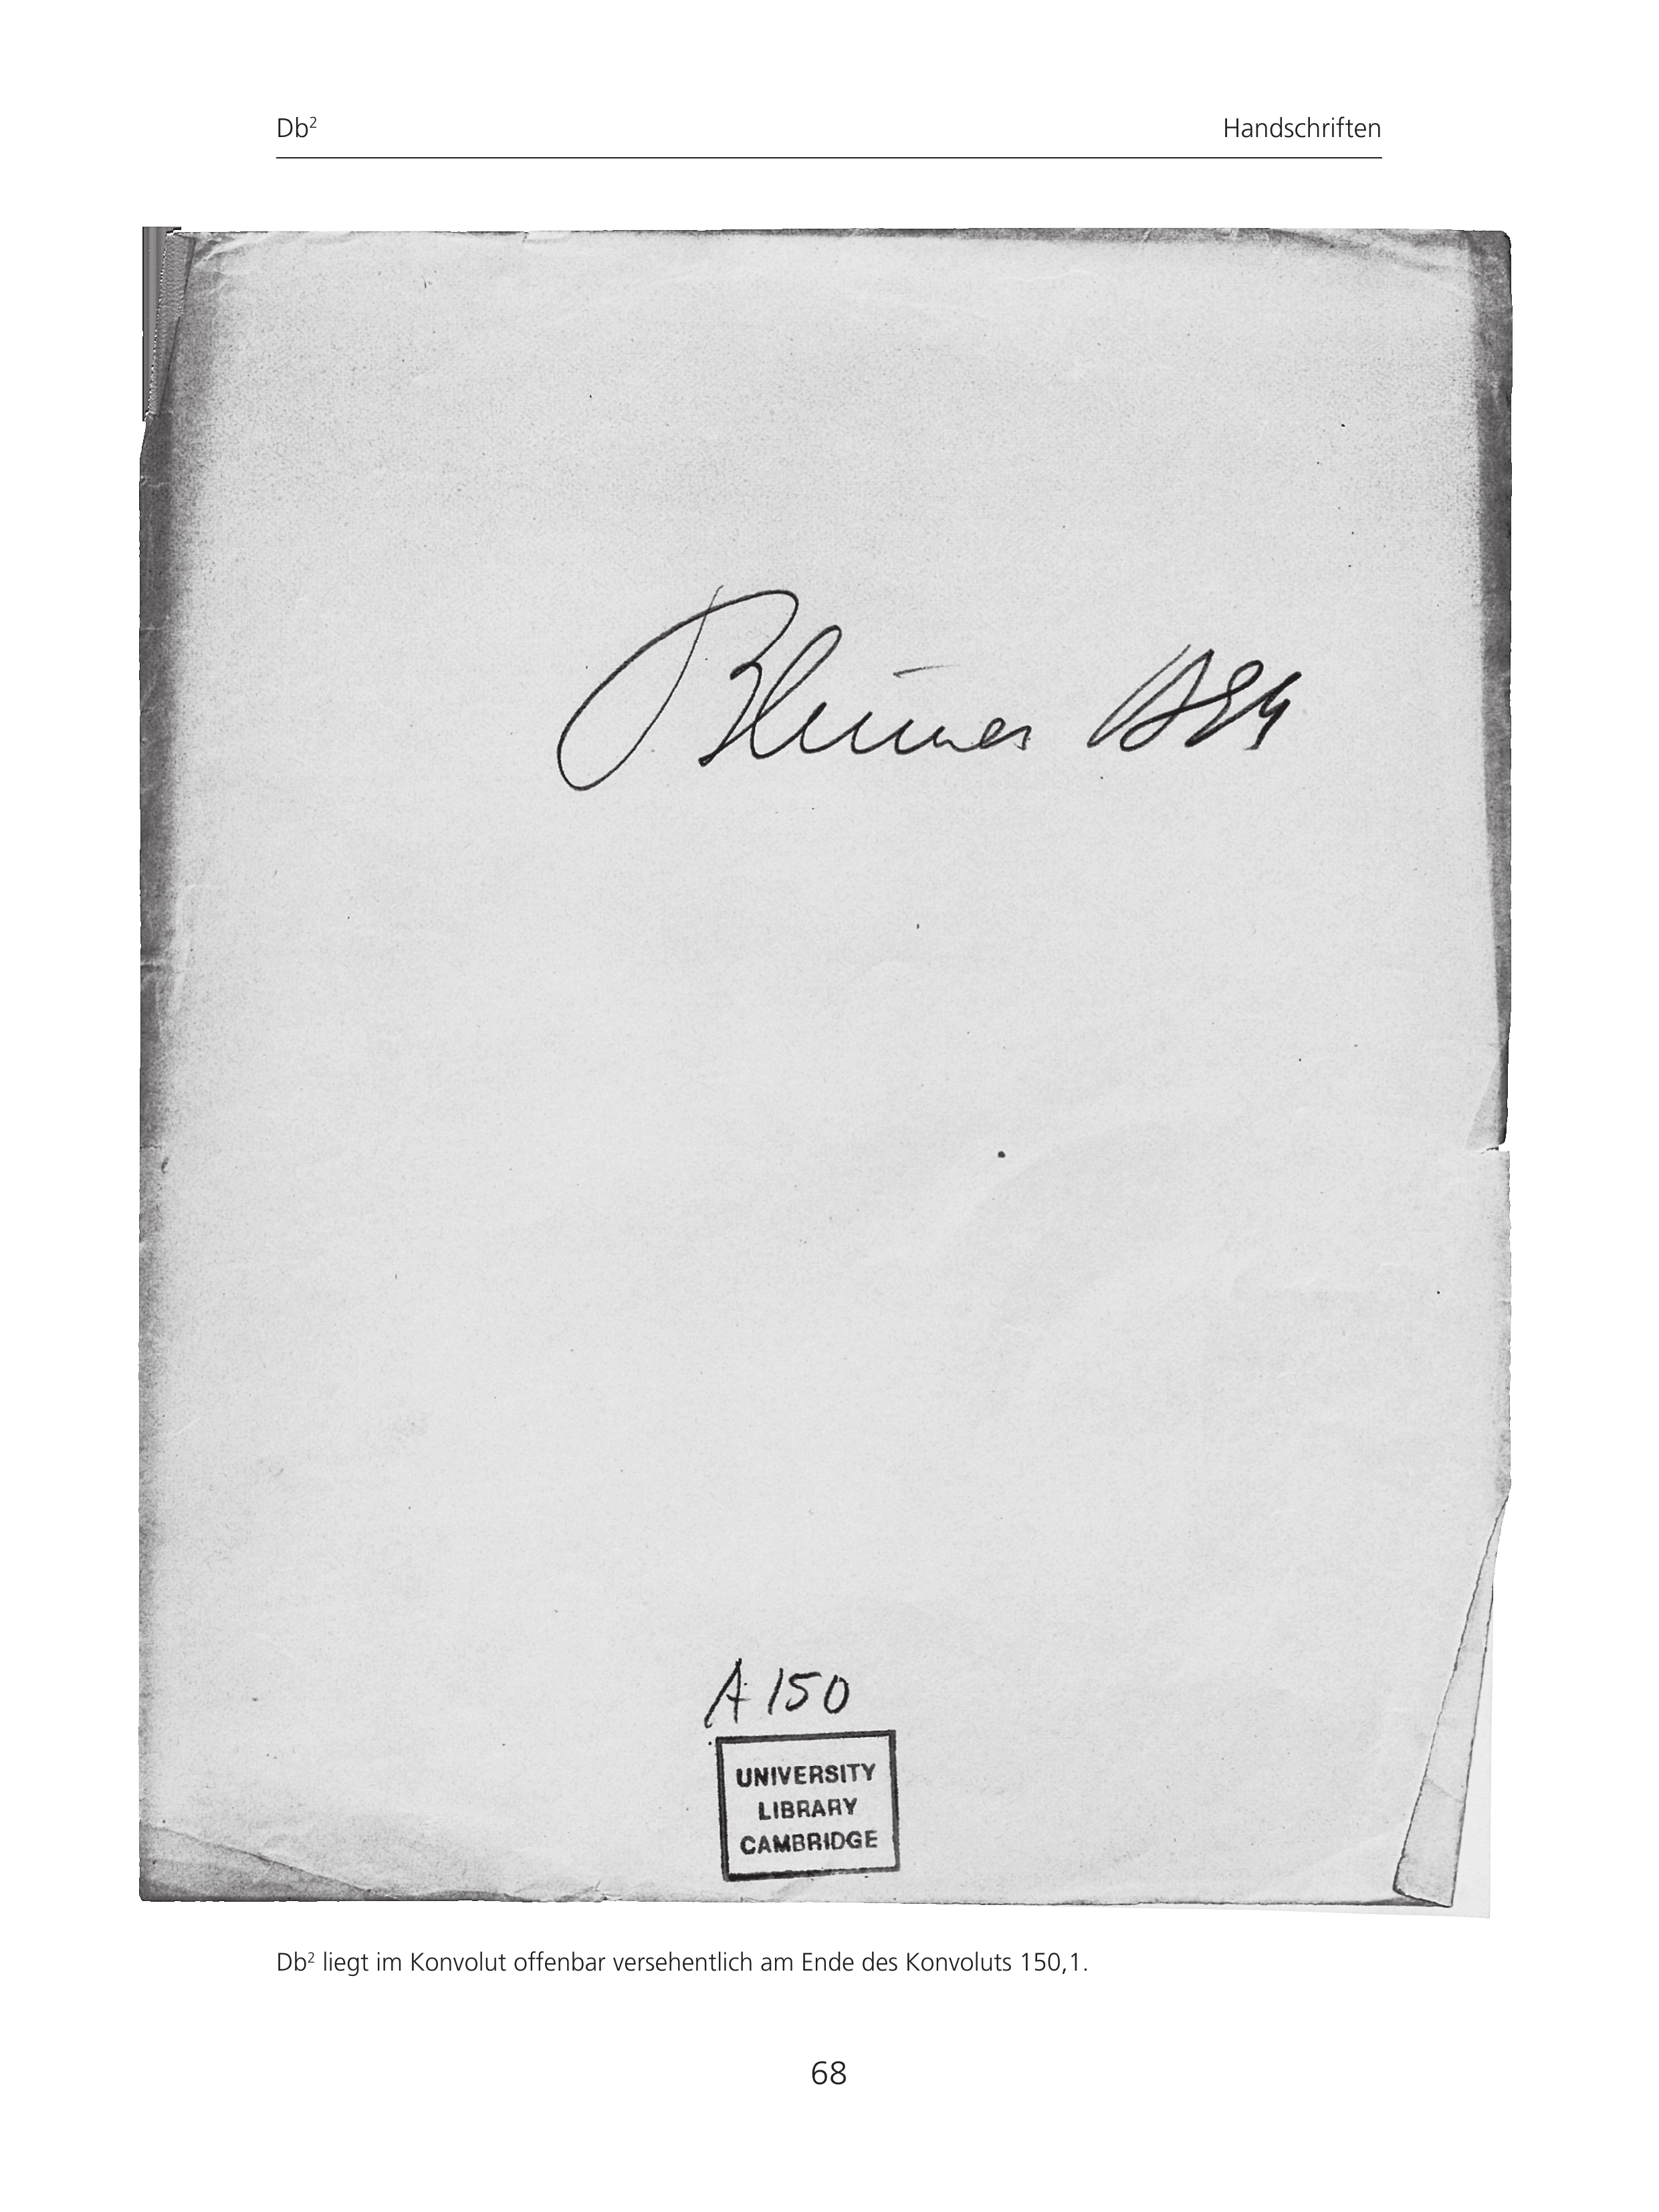 Db²
Handschriften
A 150
UNIVERSITY
LIBRARY
CAMBRIDGE
Db² liegt im Konvolut offenbar versehentlich am Ende des Konvoluts 150,1.
68